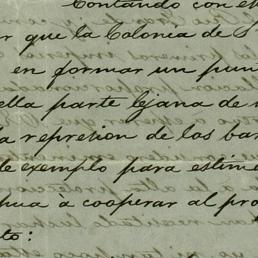 Contando con el
r que la Colonia de S
en formar un pun
ella parte lejana de
la represion de los bar
de exemplo para estim
hua á cooperar al pro
to: